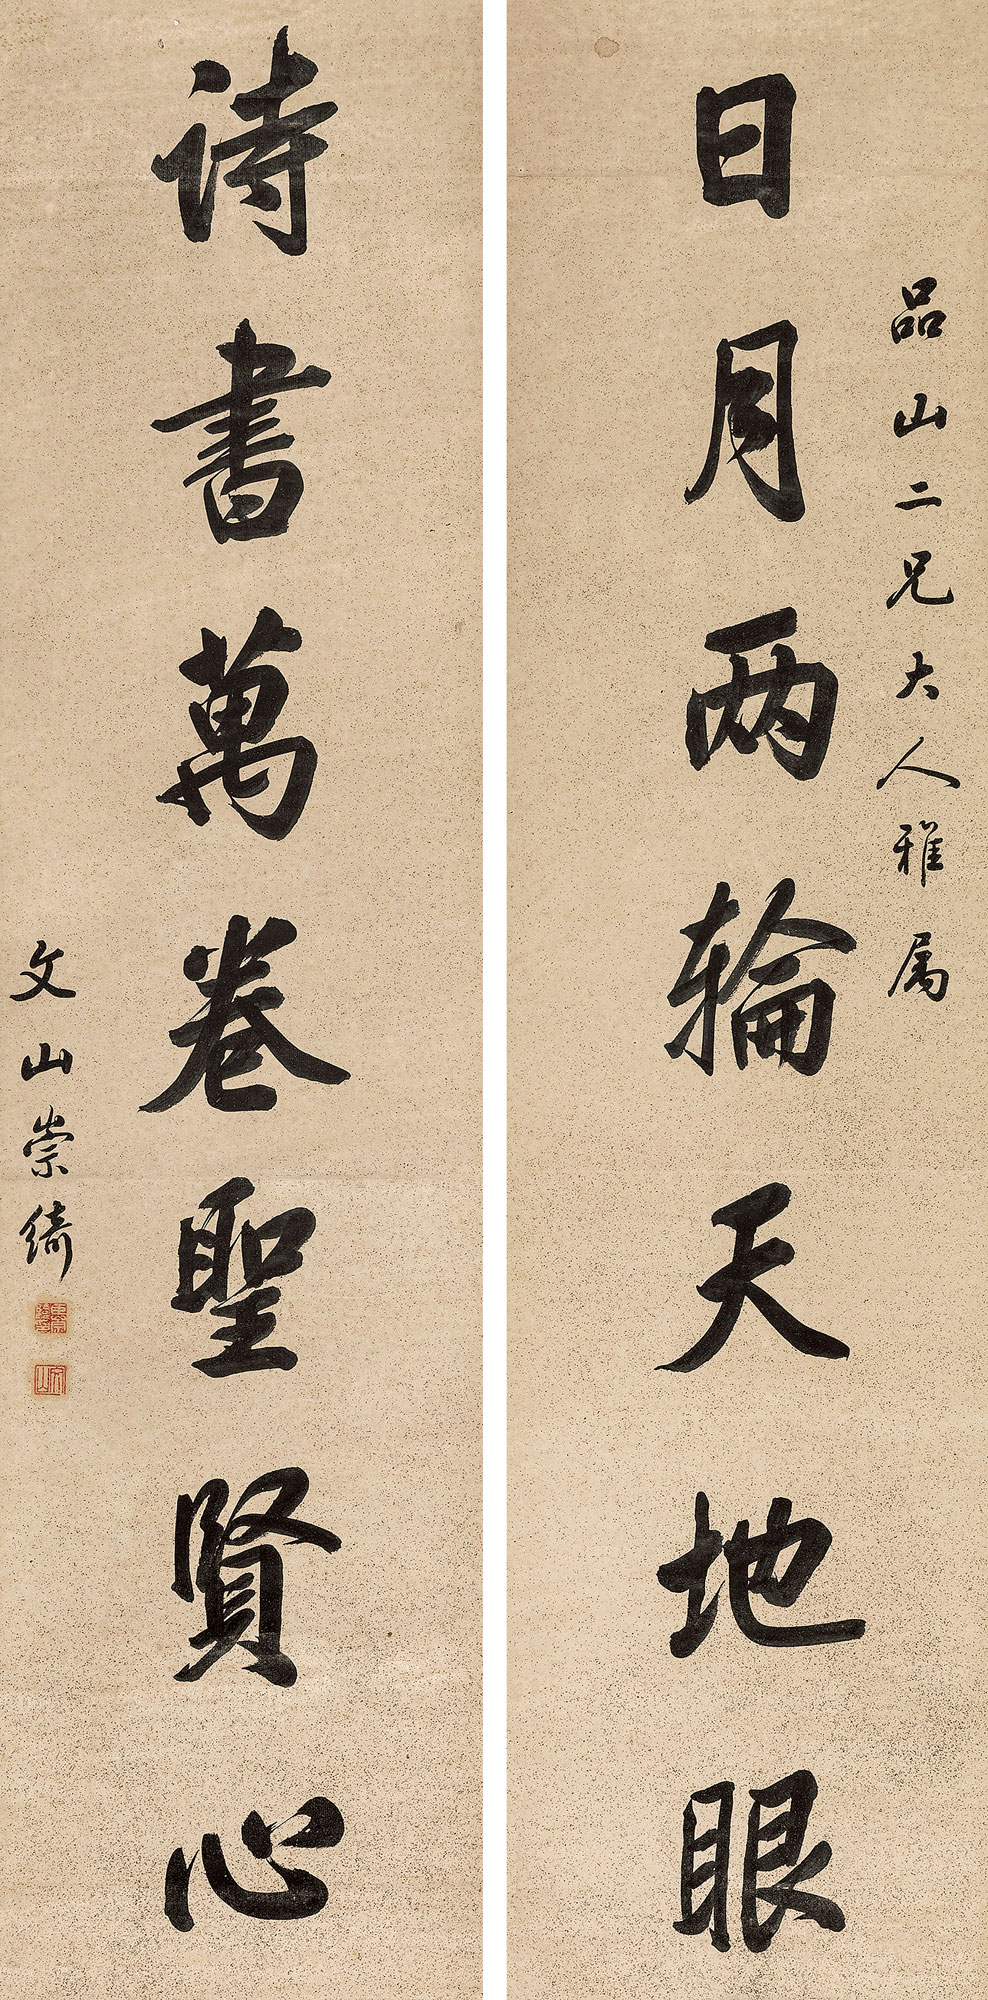 品山二兄大人雅属
日月两輪天地眼
诗書萬卷聖賢心
文山崇綺